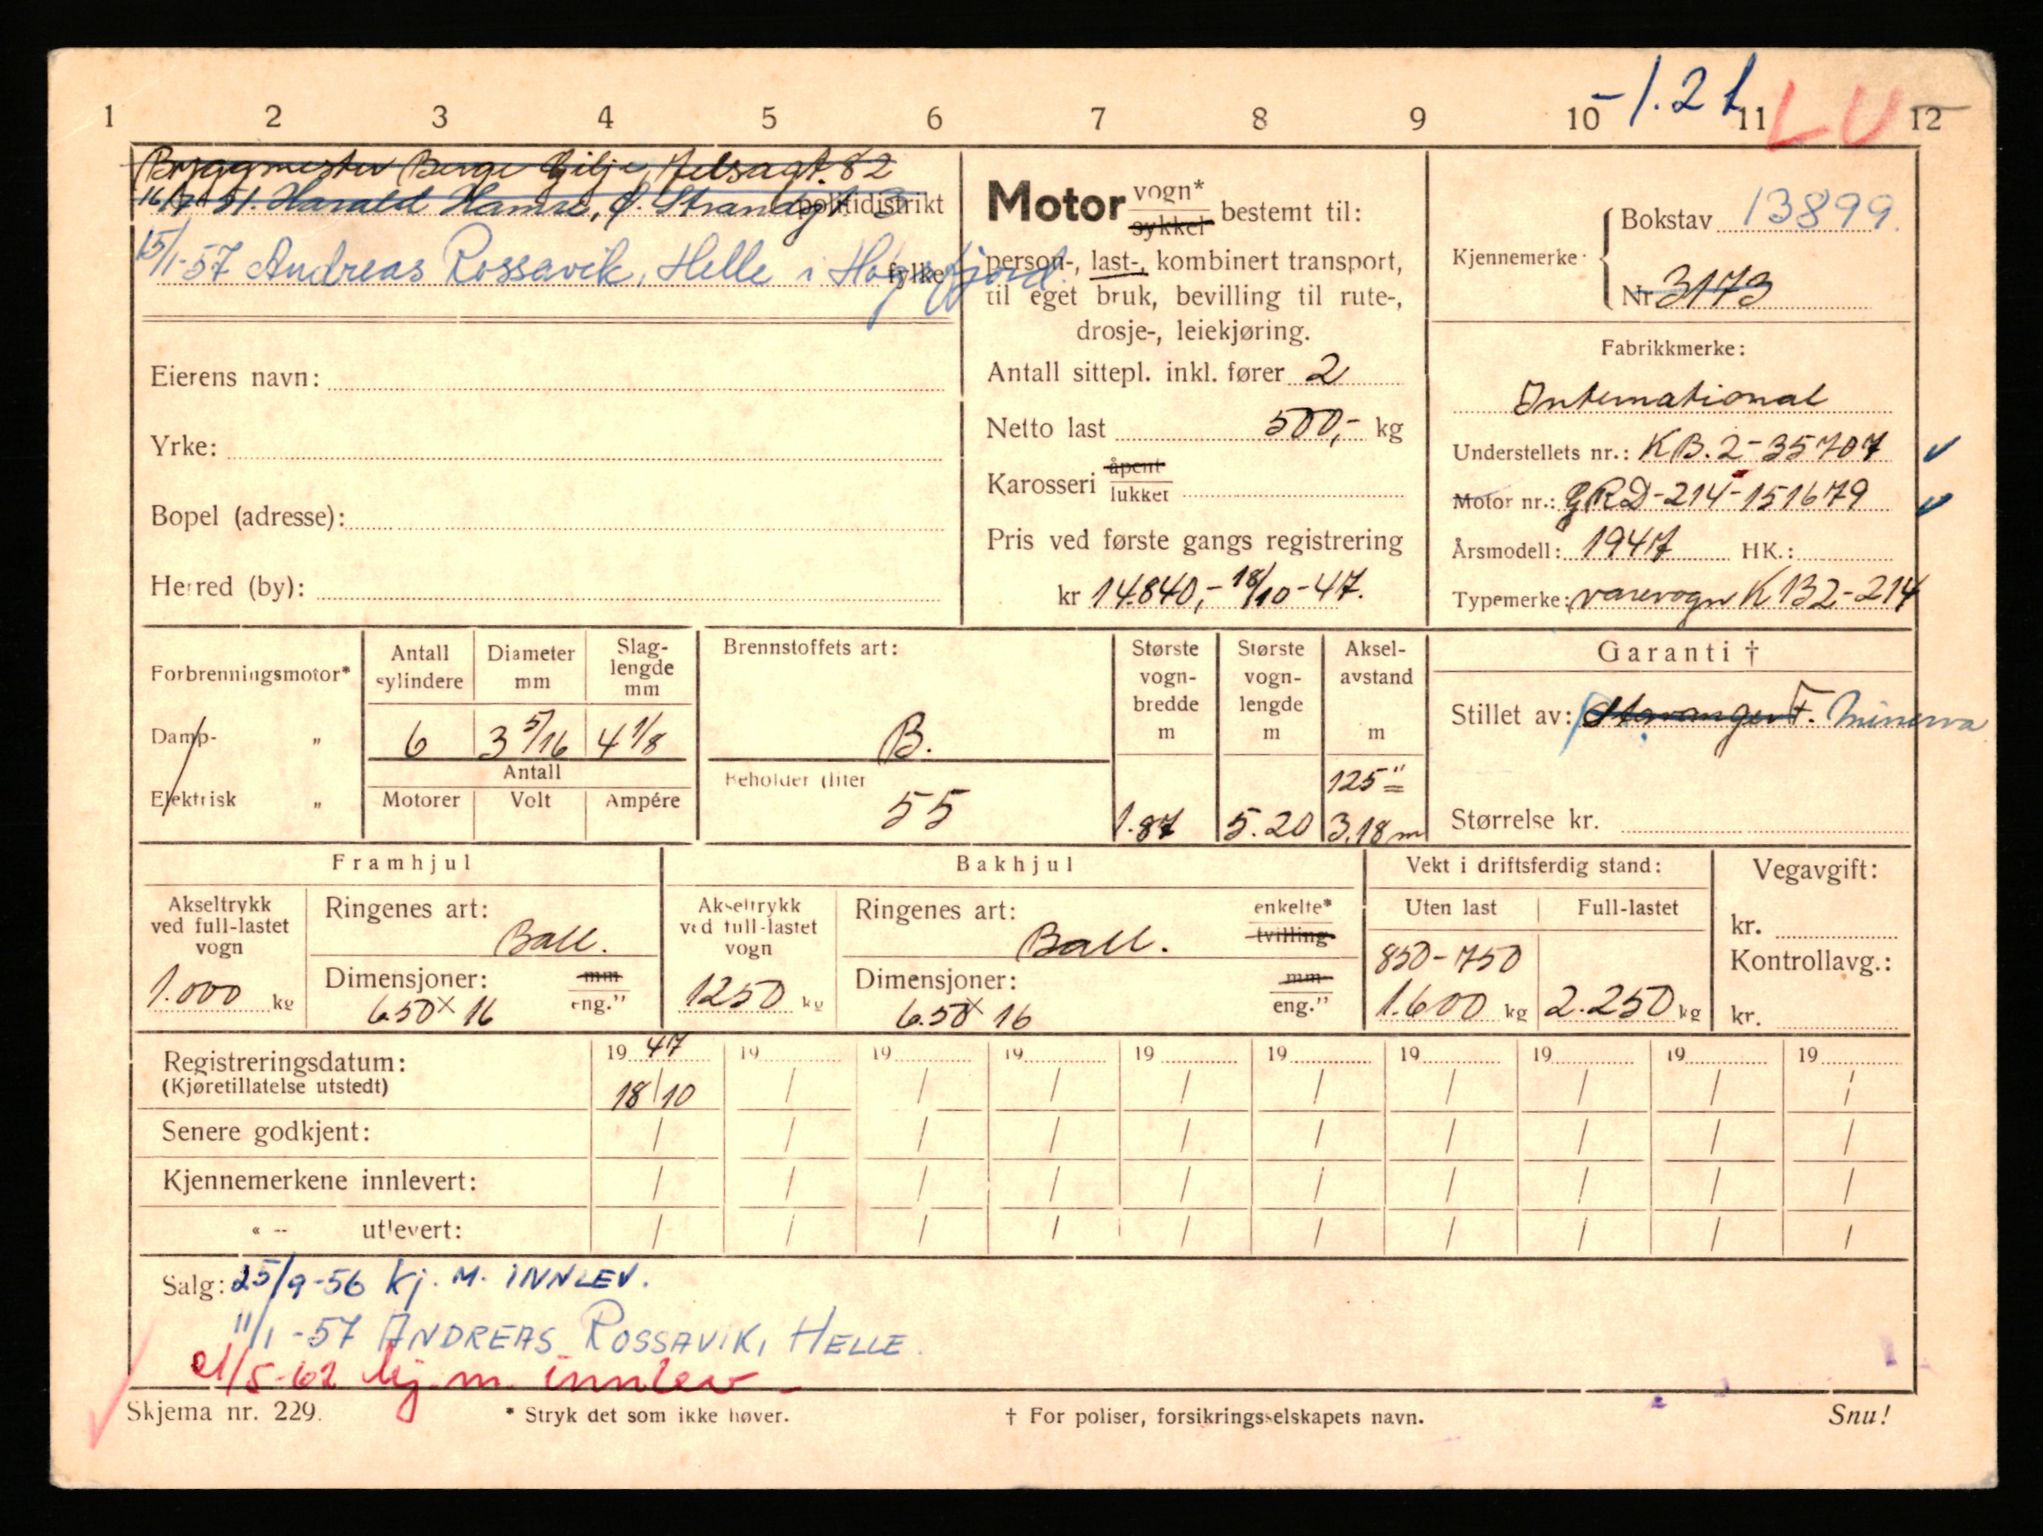 -1.21 LU
1 2 3 4 5 6 7 8 9 10 11 12
Byggmester Berge Gilje, Nelsagt. 82
16/7-51. Harald Hamre, Ø. Strandgt. 3 politidistrikt
15/1-57 Andreas Rossavik, Helle i Høgsfjord fylke
Eierens navn:
Yrke:
Bopel (adresse):
Herred (by):
Motor vogn* sykkel bestemt til:
person-, last-, kombinert transport,
til eget bruk, bevilling til rute-,
drosje-, leiekjøring.
Antall sittepl. inkl. fører 2
Netto last 500,- kg
Karosseri åpent lukket
Pris ved første gangs registrering
kr 14.840,- 18/10-47.
Kjennemerke
Bokstav 13899.
Nr 3173
Fabrikkmerke:
International
Understellets nr.: KB.2-35707
Motor nr.: GRD-214-151679
Årsmodell: 1947 HK.:
Typemerke: varevogn K132-214
Forbrenningsmotor*
Damp- „
Elektrisk „
Antall sylindere
Diameter mm
Slaglengde mm
6 3 5/16 4 1/8
Antall
Motorer Volt Ampére
Brennstoffets art:
B.
Beholder (liter
55
Største vognbredde m
1.87
Største vognlengde m
5.20
Akselavstand m
125"
3.18 m
Garanti †
Stillet av: Stavanger F. Minerva
Størrelse kr.
Framhjul
Akseltrykk ved full-lastet vogn
1.000 kg
Ringenes art:
Ball.
Dimensjoner: mm eng."
6.50 x 16
Bakhjul
Akseltrykk ved full-lastet vogn
1250 kg
Ringenes art: enkelte* tvilling
Ball.
Dimensjoner: mm eng."
6.50 x 16
Vekt i driftsferdig stand:
Uten last Full-lastet
850-750
1.600 kg 2.250 kg
Vegavgift:
kr.
Kontrollavg.:
kr.
Registreringsdatum: 19 47 19 19 19 19 19 19 19 19 19
(Kjøretillatelse utstedt) 18/10 / / / / / / / / /
Senere godkjent: / / / / / / / / / /
Kjennemerkene innlevert: / / / / / / / / / /
« -- utlevert: / / / / / / / / / /
Salg: 25/9-56 kj. M. INNLEV.
11/1-57 ANDREAS ROSSAVIK, HELLE.
21/5-62 kj.m. innlev -
Skjema nr. 229.
* Stryk det som ikke høver.
† For poliser, forsikringsselskapets navn.
Snu!